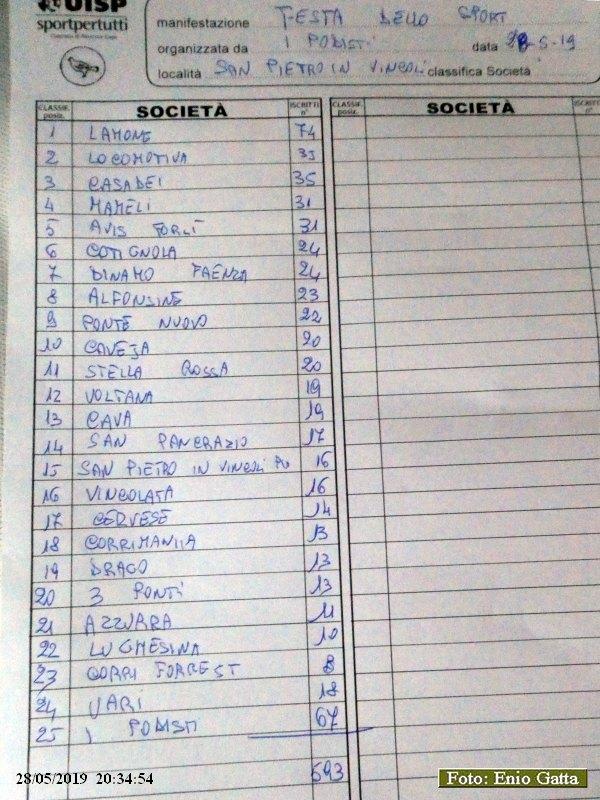 UISP
sportpertutti
manifestazione FESTA DELLO SPORT
organizzata da I PODISTI data 28-5-19
località SAN PIETRO IN VINCOLI classifica Società
CLASSIF. posiz. SOCIETÀ ISCRITTI n° CLASSIF. posiz. SOCIETÀ ISCRITTI n°
1 LAMONE 74
2 LOCOMOTIVA
3 CASADEI 35
4 MAMELI 31
5 AVIS FORLÌ 31
6 COTIGNOLA 24
7 DINAMO FAENZA 24
8 ALFONSINE 23
9 PONTE NUOVO 22
10 CAVEJA 20
11 STELLA ROSSA 20
12 VOLTANA 19
13 CAVA 19
14 SAN PANCRAZIO 17
15 SAN PIETRO IN VINCOLI 16
16 VINCOLATA 16
17 CERVESE 14
18 CORRIMANIA 13
19 DRAGO 13
20 3 PONTI 13
21 AZZURRA 11
22 LUGHESINA 10
23 CORRI FORREST 8
24 VARI 18
25 I PODISTI 67
593
28/05/2019 20:34:54
Foto: Enio Gatta